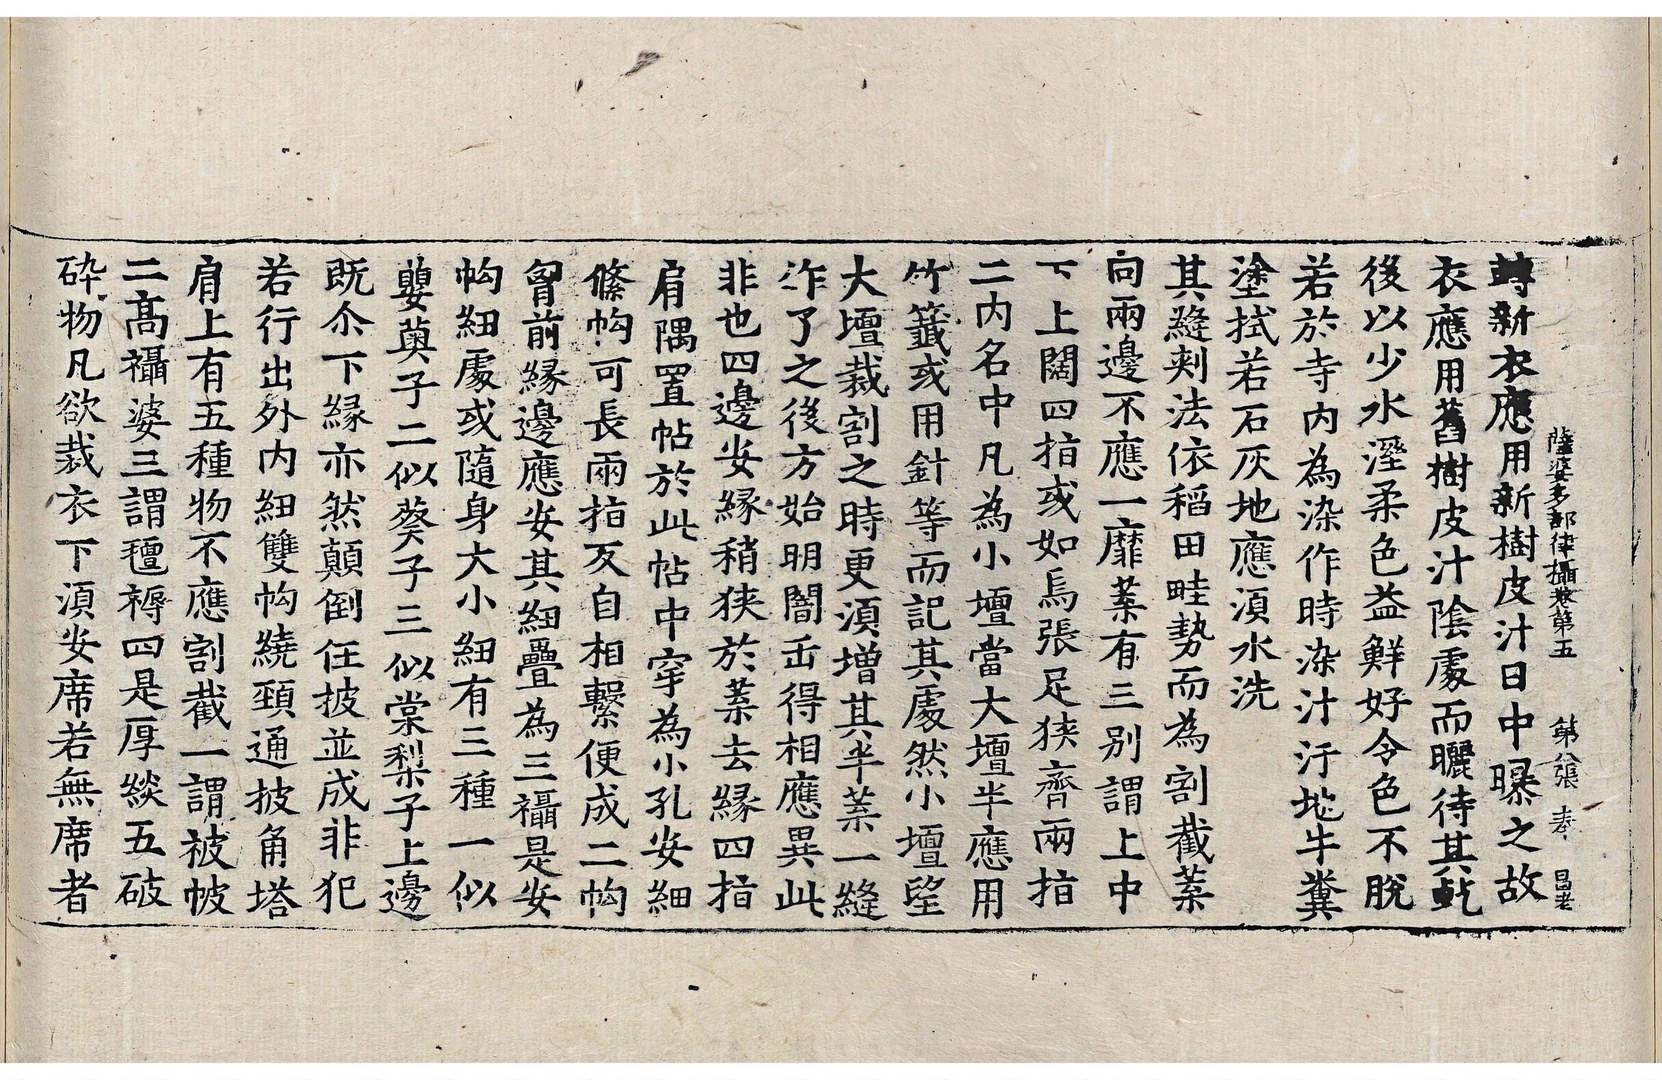 薩婆多部律攝卷第五 第八張 奉 昌老
時新衣應用新樹皮汁日中曝之故
衣應用舊樹皮汁陰處而曬待其乾
後以少水溼柔色益鮮好令色不脫
若於寺內為染作時染汁汙地牛糞
塗拭若石灰地應湏水洗
其縫刾法依稻田畦勢而為割截葉
向兩邊不應一靡葉有三別謂上中
下上闊四指或如烏張足狹齊兩指
二內名中凡為小壇當大壇半應用
竹籤或用針等而記其處然小壇望
大壇裁割之時更湏增其半葉一縫
作了之後方始明闇缶得相應異此
非也四邊安緣稍狹於葉去緣四指
肩隅置帖於此帖中穿為小孔安細
絛㡇可長兩指反自相繫便成二㡇
𦚾前緣邊應安其細疊為三襵是安
㡇細處或隨身大小細有三種一似
蘡薁子二似葵子三似棠梨子上邊
既尒下緣亦然顛倒任披並成非犯
若行出外內細雙㡇繞頸通披角塔
肩上有五種物不應割截一謂被帔
二高襵婆三謂氊褥四是厚緂五破
碎物凡欲裁衣下湏安席若無席者